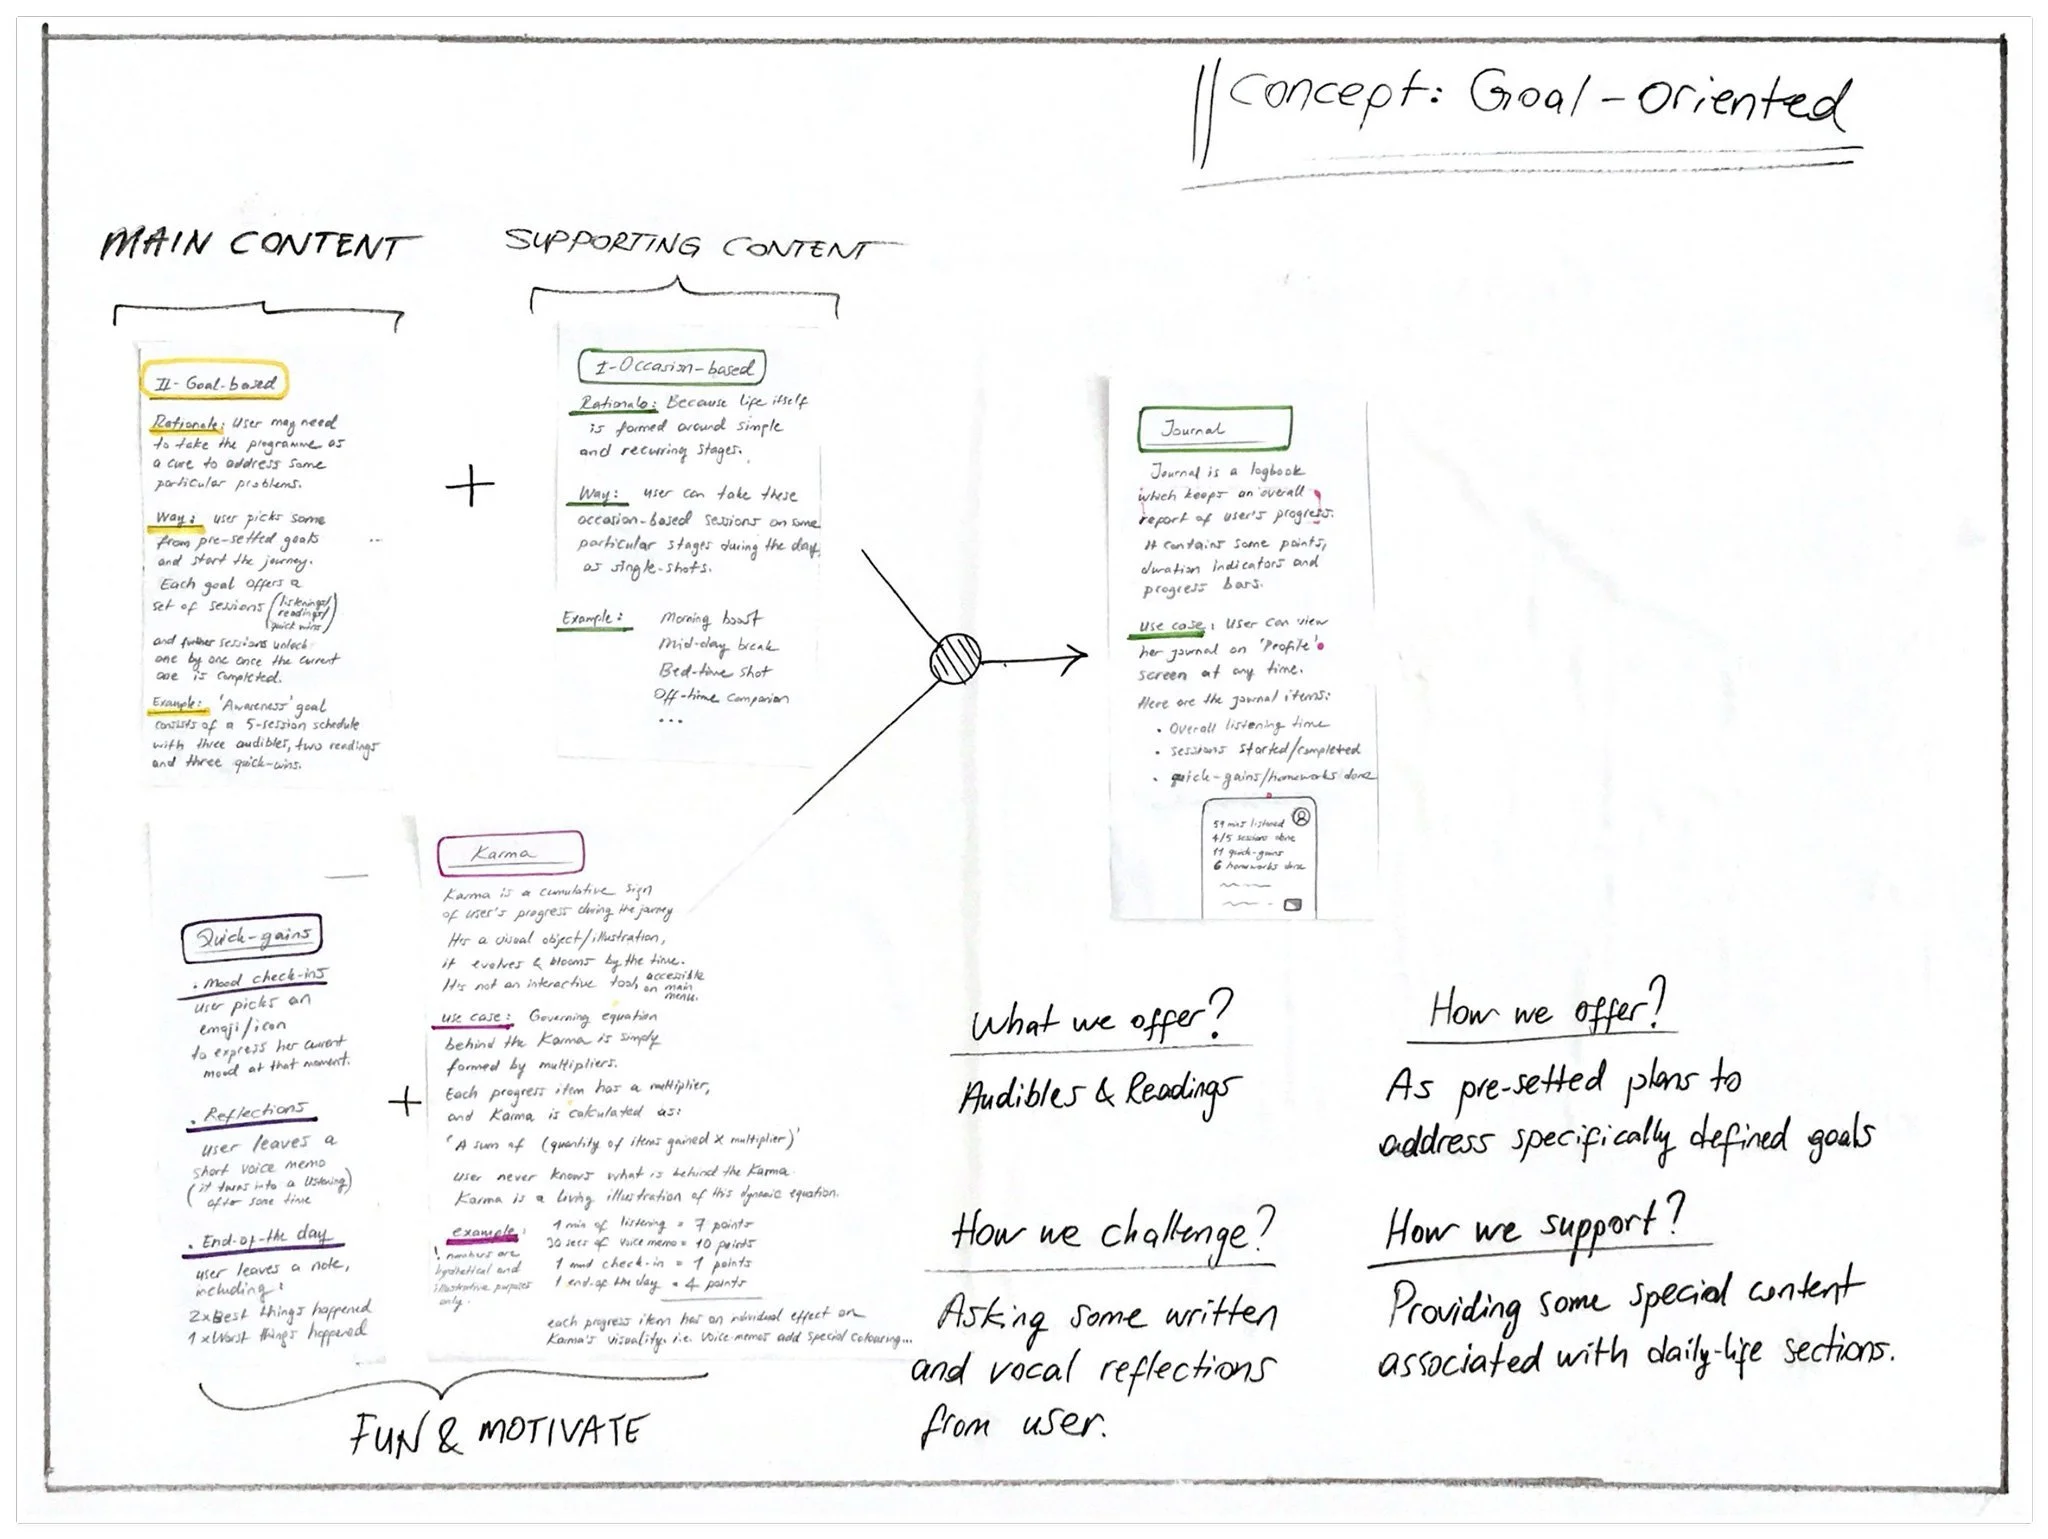 Concept: Goal-Oriented
MAIN CONTENT
SUPPORTING CONTENT
II-Goal-based
Rationale: User may need
to take the programme as
a cure to address some
particular problems.
Way: user picks some
from pre-setted goals
and start the journey.
Each goal offers a
set of sessions (listenings/
readings/
quick wins)
and further sessions unlock
one by one once the current
one is completed.
Example: 'Awareness' goal
consists of a 5-session schedule
with three audibles, two readings
and three quick-wins.
+
I-Occasion-based
Rationale: Because life itself
is formed around simple
and recurring stages.
Way: user can take these
occasion-based sessions on some
particular stages during the day,
as single-shots.
Example: Morning boost
Mid-day break
Bed-time shot
Off-time companion
...
Journal
Journal is a logbook
which keeps an overall
report of user's progress.
It contains some points,
duration indicators and
progress bars.
Use case: User can view
her journal on 'Profile'
screen at any time.
Here are the journal items:
• Overall listening time
• sessions started/completed
• quick-gains/homeworks done
59 mins listened
4/5 sessions done
11 quick-gains
6 homeworks done
Quick-gains
• Mood check-ins
User picks an
emoji/icon
to express her current
mood at that moment.
• Reflections
user leaves a
short voice memo
(it turns into a listening)
after some time
• End-of-the day
user leaves a note,
including:
2xBest things happened
1xWorst things happened
+
Karma
Karma is a cumulative sign
of user's progress during the journey
It's a visual object/illustration,
it evolves & blooms by the time.
It's not an interactive tool, accessible
on main
menu.
use case: Governing equation
behind the Karma is simply
formed by multipliers.
Each progress item has a multiplier,
and Karma is calculated as:
'A sum of (quantity of items gained x multiplier)'
user never knows what is behind the Karma.
Karma is a living illustration of this dynamic equation.
example: 1 min of listening = 7 points
30 secs of voice memo = 10 points
1 mood check-in = 1 points
1 end-of the day = 4 points
! numbers are
hypthetical and
illustrative purposes
only.
each progress item has an individual effect on
Karma's visuality. i.e. voice-memos add special colouring...
FUN & MOTIVATE
What we offer?
Audibles & Readings
How we offer?
As pre-setted plans to
address specifically defined goals
How we challenge?
Asking some written
and vocal reflections
from user.
How we support?
Providing some special content
associated with daily-life sections.